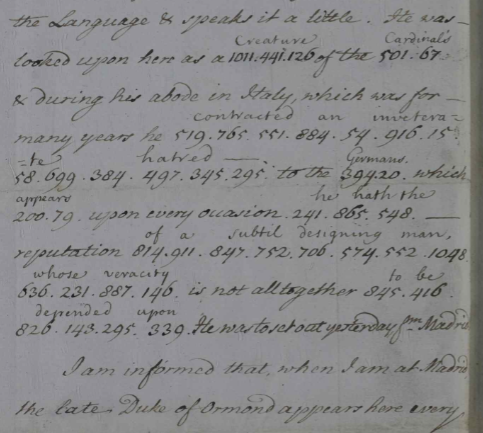 the Language & speaks it a little. He was
Creature Cardinal's
looked upon here as a 1011.441.126 of the 501.67
& during his abode in Italy, which was for
contracted an invetera-
many years he 519.765.551.884.54.916.15
=te hatred Germans.
58.699.384.497.345.295. to the 394.20. which
appears he hath the
200.79. upon every occasion. 241.865.548.
of a subtil designing man,
reputation 814.911.847.752.706.574.552.1098
whose veracity to be
636.231.887.146. is not alltogether 845.416.
depended upon
826.143.295.339. He was to set out yesterday fm Madrid
I am informed that, when I am at Madrid
the late Duke of Ormond appears here every